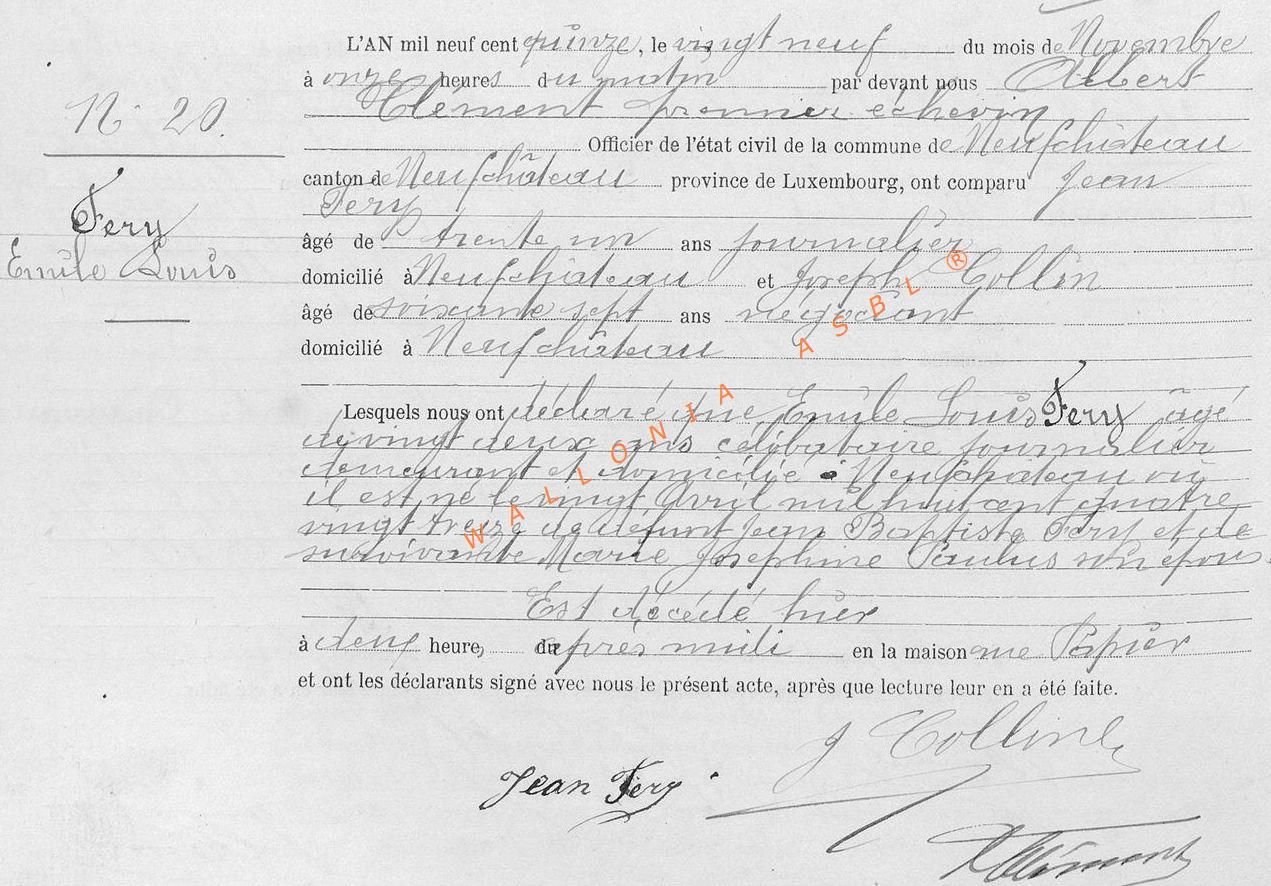 L'AN mil neuf cent quinze, le vingt neuf du mois de Novembre
à onze heures du matin par devant nous Albert
Clément premier échevin
N° 20.
Officier de l'état civil de la commune de Neufchâteau
canton de Neufchâteau province de Luxembourg, ont comparu Jean
Fery
Fery
Emile Louis
âgé de trente un ans journalier
domicilié à Neufchâteau et Joseph Collin
âgé de soixante sept ans négociant
domicilié à Neufchâteau
Lesquels nous ont déclaré que Emile Louis Fery âgé
de vingt deux ans célibataire journalier
demeurant et domicilié à Neufchateau où
il est né le vingt Avril mil huit cent quatre
vingt treize de défunt Jean Baptiste Fery et de
survivante Marie Joséphine Paulus son épous
Est décédé hier
à deux heures du après midi en la maison rue Papier
et ont les déclarants signé avec nous le présent acte, après que lecture leur en a été faite.
J Collin
Jean Fery
AClément
WALLONIA ASBL ®